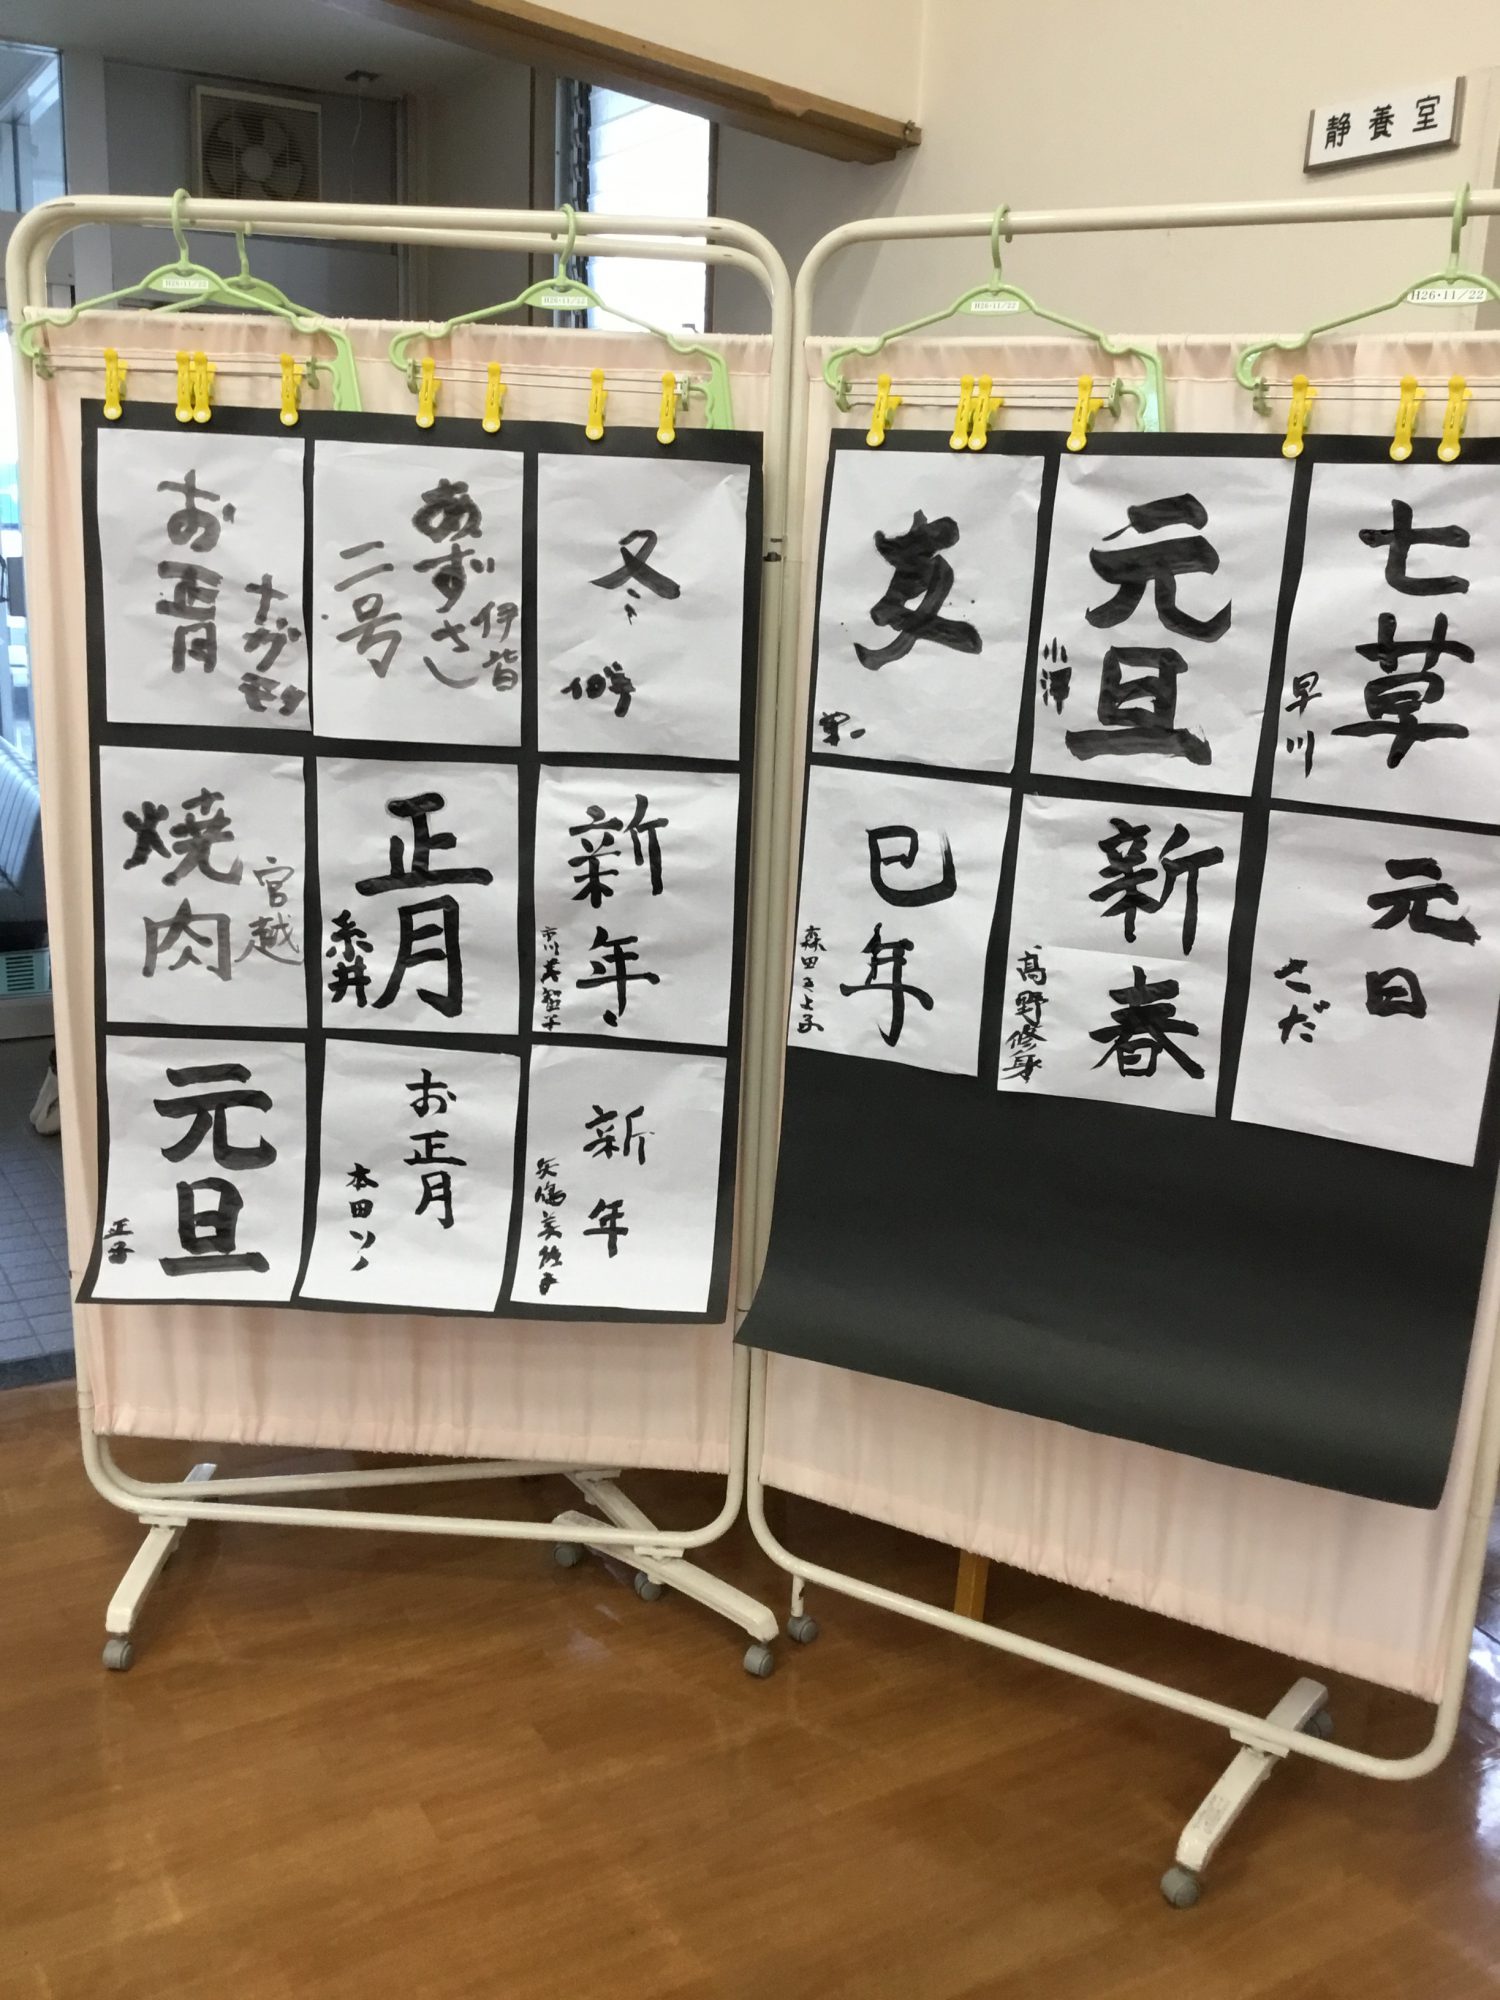 静養室
H26・11/22
H26・11/22
H26・11/22
H26・11/22
お正月
ナガモタ
あずさし
二号
伊皆
冬
焼肉
宮越
正月
糸井
新年
元旦
正子
お正月
本田ソノ
新年
友
元旦
小澤
七草
早川
巳年
森田きよ子
新春
高野修身
元日
さだ